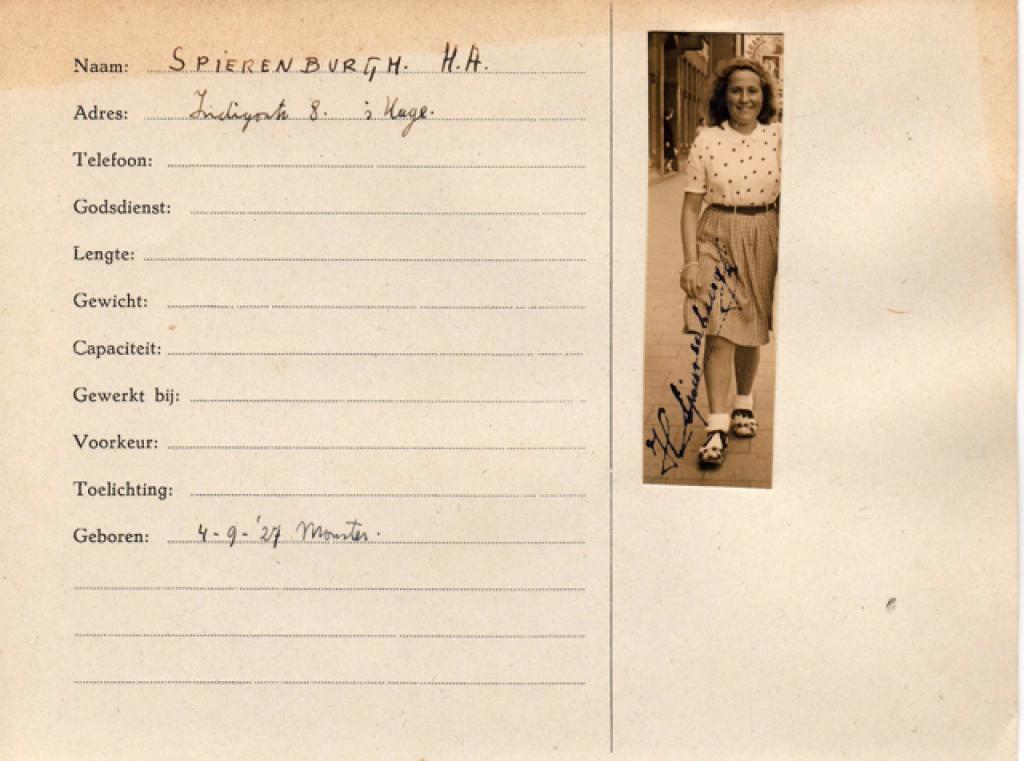 Naam: SPIERENBURGH. H.A.
Adres: Indigostr 8. 's Hage.
Telefoon:
Godsdienst:
Lengte:
Gewicht:
Capaciteit:
Gewerkt bij:
Voorkeur:
Toelichting:
Geboren: 4-9-'27 Monster.
H Spierenburgh